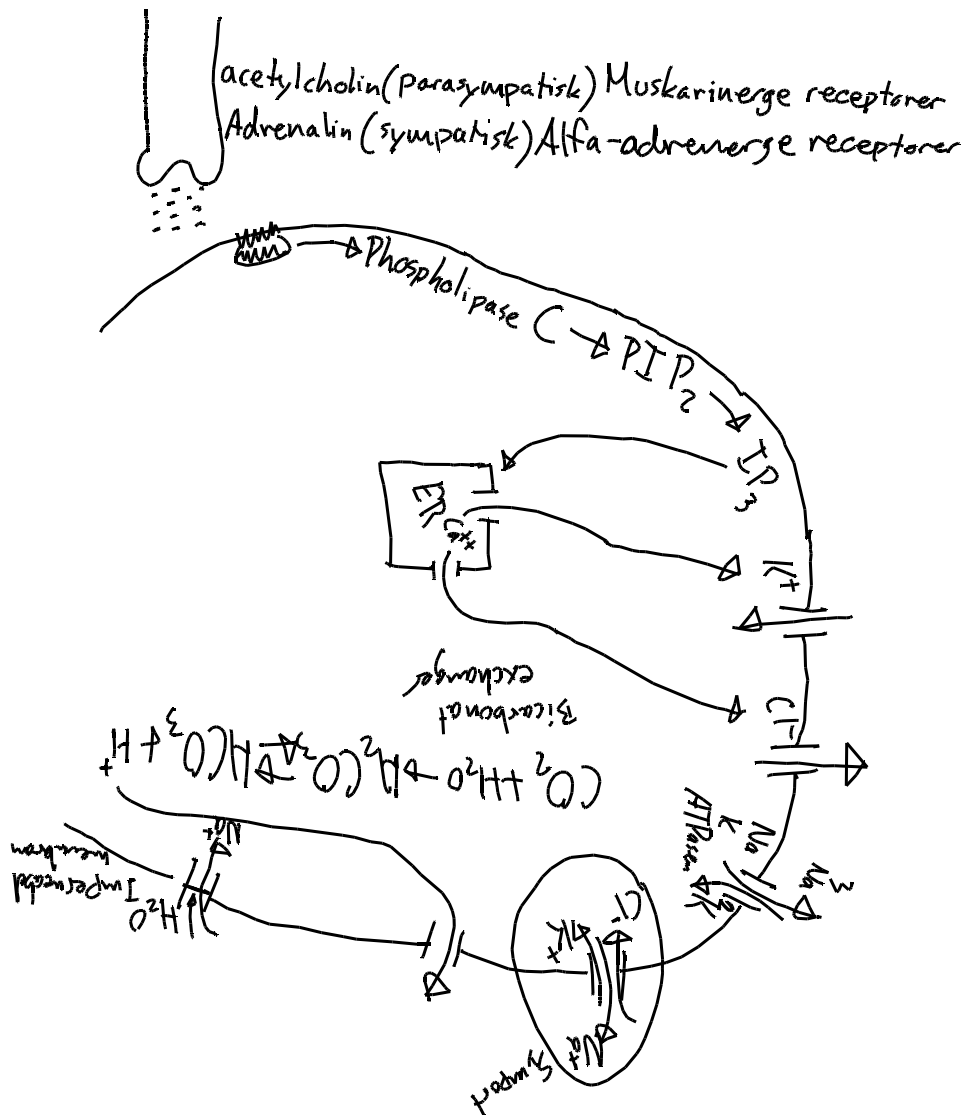 acetylcholin (parasympatisk) Muskarinerge receptorer
Adrenalin (sympatisk) Alfa-adrenerge receptorer
Phospholipase C → PIP₂ → IP₃
ER
Ca⁺⁺
K⁺
Cl⁻
Bicarbonat
exchange
CO₂ + H₂O → H₂CO₃ → HCO₃ + H⁺
Na
K
ATPasen
3
Na
2
K
Cl⁻
K⁺
Na⁺
Symport
Na⁺
H₂O
Impermeabel
membran